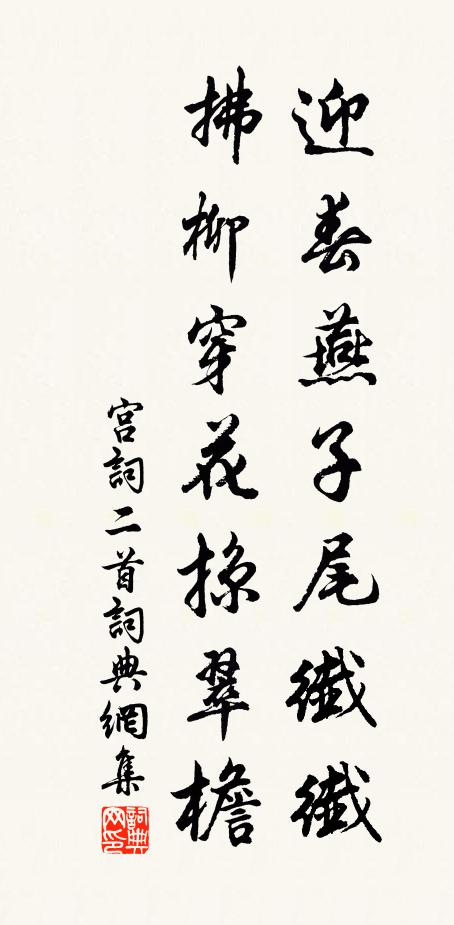 迎春燕子尾纖纖
拂柳穿花掠翠檐
宫詞二首詞典網集
詞典
网印